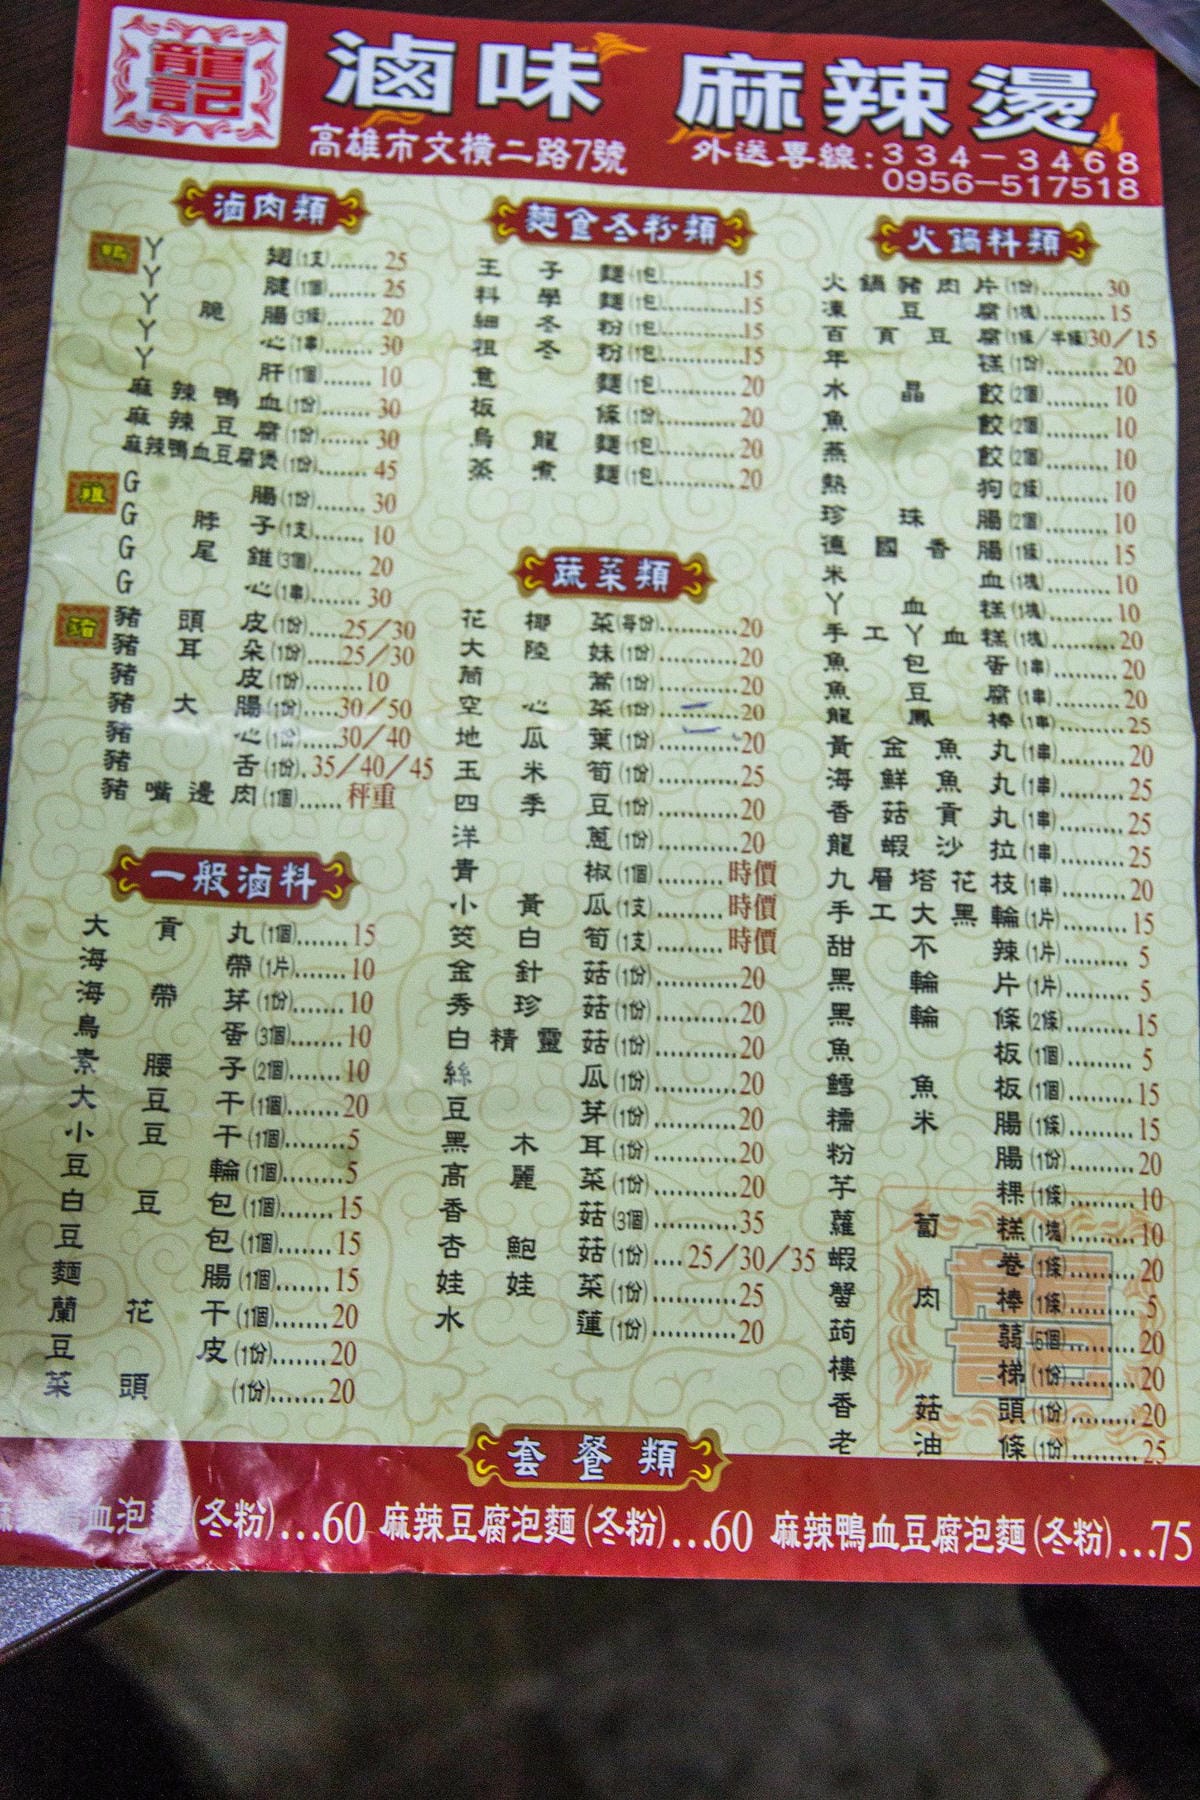 龍記
滷味 麻辣燙
高雄市文橫二路7號 外送專線:334-3468
0956-517518
滷肉類
鴨
丫翅(1支).......25
丫腱(1個).......25
丫脆腸(3條).......20
丫心(1串).......30
丫肝(1個).......10
麻辣鴨血(1份).......30
麻辣豆腐(1份).......30
麻辣鴨血豆腐煲(1份).......45
雞
G腸(1份).......30
G脖子(1支).......10
G尾錐(3個).......20
G心(1串).......30
豬
豬頭皮(1份).....25/30
豬耳朵(1份).....25/30
豬皮(1份)........10
豬大腸(1份).....30/50
豬心(1份).....30/40
豬舌(1份).35/40/45
豬嘴邊肉(1個)......秤重
一般滷料
大貢丸(1個).......15
海帶(1片).......10
海帶芽(1份).......10
鳥蛋(3個).......10
素腰子(2個).......10
大豆干(1個).......20
小豆干(1個).......5
豆輪(1個).......5
白豆包(1個).......15
豆包(1個).......15
麵腸(1個).......15
蘭花干(1個).......20
豆皮(1份).......20
菜頭(1份).......20
麵食冬粉類
王子麵(1包)............15
科學麵(1包)............15
細冬粉(1包)............15
粗冬粉(1包)............15
意麵(1包)............20
板條(1份)............20
烏龍麵(1包)............20
蒸煮麵(1包)............20
蔬菜類
花椰菜(每份)...........20
大陸妹(1份)...........20
茼蒿(1份)...........20
空心菜(1份)...........20
地瓜葉(1份)...........20
玉米筍(1份)...........25
四季豆(1份)...........20
洋蔥(1份)...........20
青椒(1個)..........時價
小黃瓜(1支)..........時價
筊白筍(1支)..........時價
金針菇(1份)...........20
秀珍菇(1份)...........20
白精靈菇(1份)...........20
絲瓜(1份)...........20
豆芽(1份)...........20
黑木耳(1份)...........20
高麗菜(1份)...........20
香菇(3個)...........35
杏鮑菇(1份)....25/30/35
娃娃菜(1份)...........25
水蓮(1份)...........20
火鍋料類
火鍋豬肉片(1份)..........30
凍豆腐(1塊)..........15
百頁豆腐(1條/半條)30/15
年糕(1份)..........20
水晶餃(2個)..........10
魚餃(2個)..........10
燕餃(2個)..........10
熱狗(2條)..........10
珍珠腸(2個)..........10
德國香腸(1條)..........15
米血(1塊)..........10
丫血糕(1塊)..........10
手工丫血糕(1塊)..........20
魚包蛋(1串)..........20
魚豆腐(1串)..........20
龍鳳棒(1串)..........25
黃金魚丸(1串)..........20
海鮮魚丸(1串)..........25
香菇貢丸(1串)..........25
龍蝦沙拉(1串)..........25
九層塔花枝(1串)..........20
手工大黑輪(1片)..........15
甜不辣(1片)..........5
黑輪片(1片)..........5
黑輪條(2條)..........15
魚板(1個)..........5
鱈魚板(1個)..........15
糯米腸(1條)..........15
粉腸(1份)..........20
芋粿(1條)..........10
蘿蔔糕(1塊)..........10
蝦卷(1條)..........20
蟹肉棒(1條)..........5
蒟蒻(5個)..........20
樓梯(1份)..........20
香菇頭(1份)..........20
老油條(1份)..........25
套餐類
麻辣鴨血泡麵(冬粉)...60 麻辣豆腐泡麵(冬粉)...60 麻辣鴨血豆腐泡麵(冬粉)...75